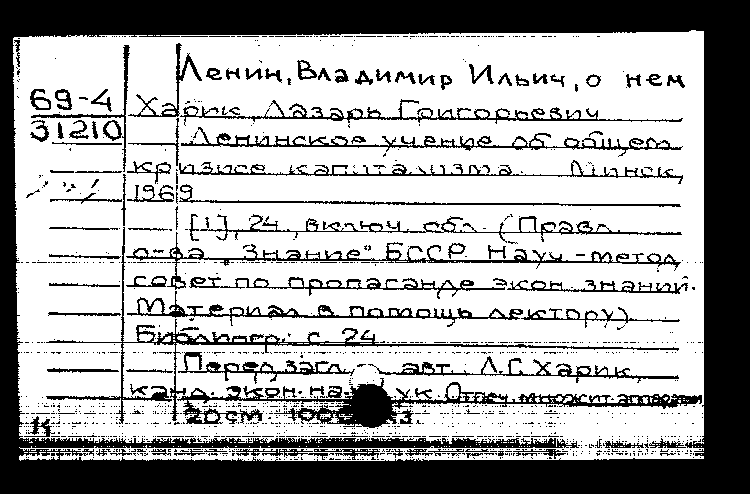 Ленин, Владимир Ильич, о нем
69-4 Харик, Лазарь Григорьевич
31210 Ленинское учение об общем
кризисе капитализма. Минск,
1969
[1], 24, включ. обл. (Правл.
о-ва „Знание" БССР. Науч.-метод.
совет по пропаганде экон. знаний.
Материал в помощь лектору).
Библиогр.: с. 24
Перед загл. авт.: Л.Г. Харик,
канд. экон. наук. Отпеч. множит. аппаратом
20 см
К